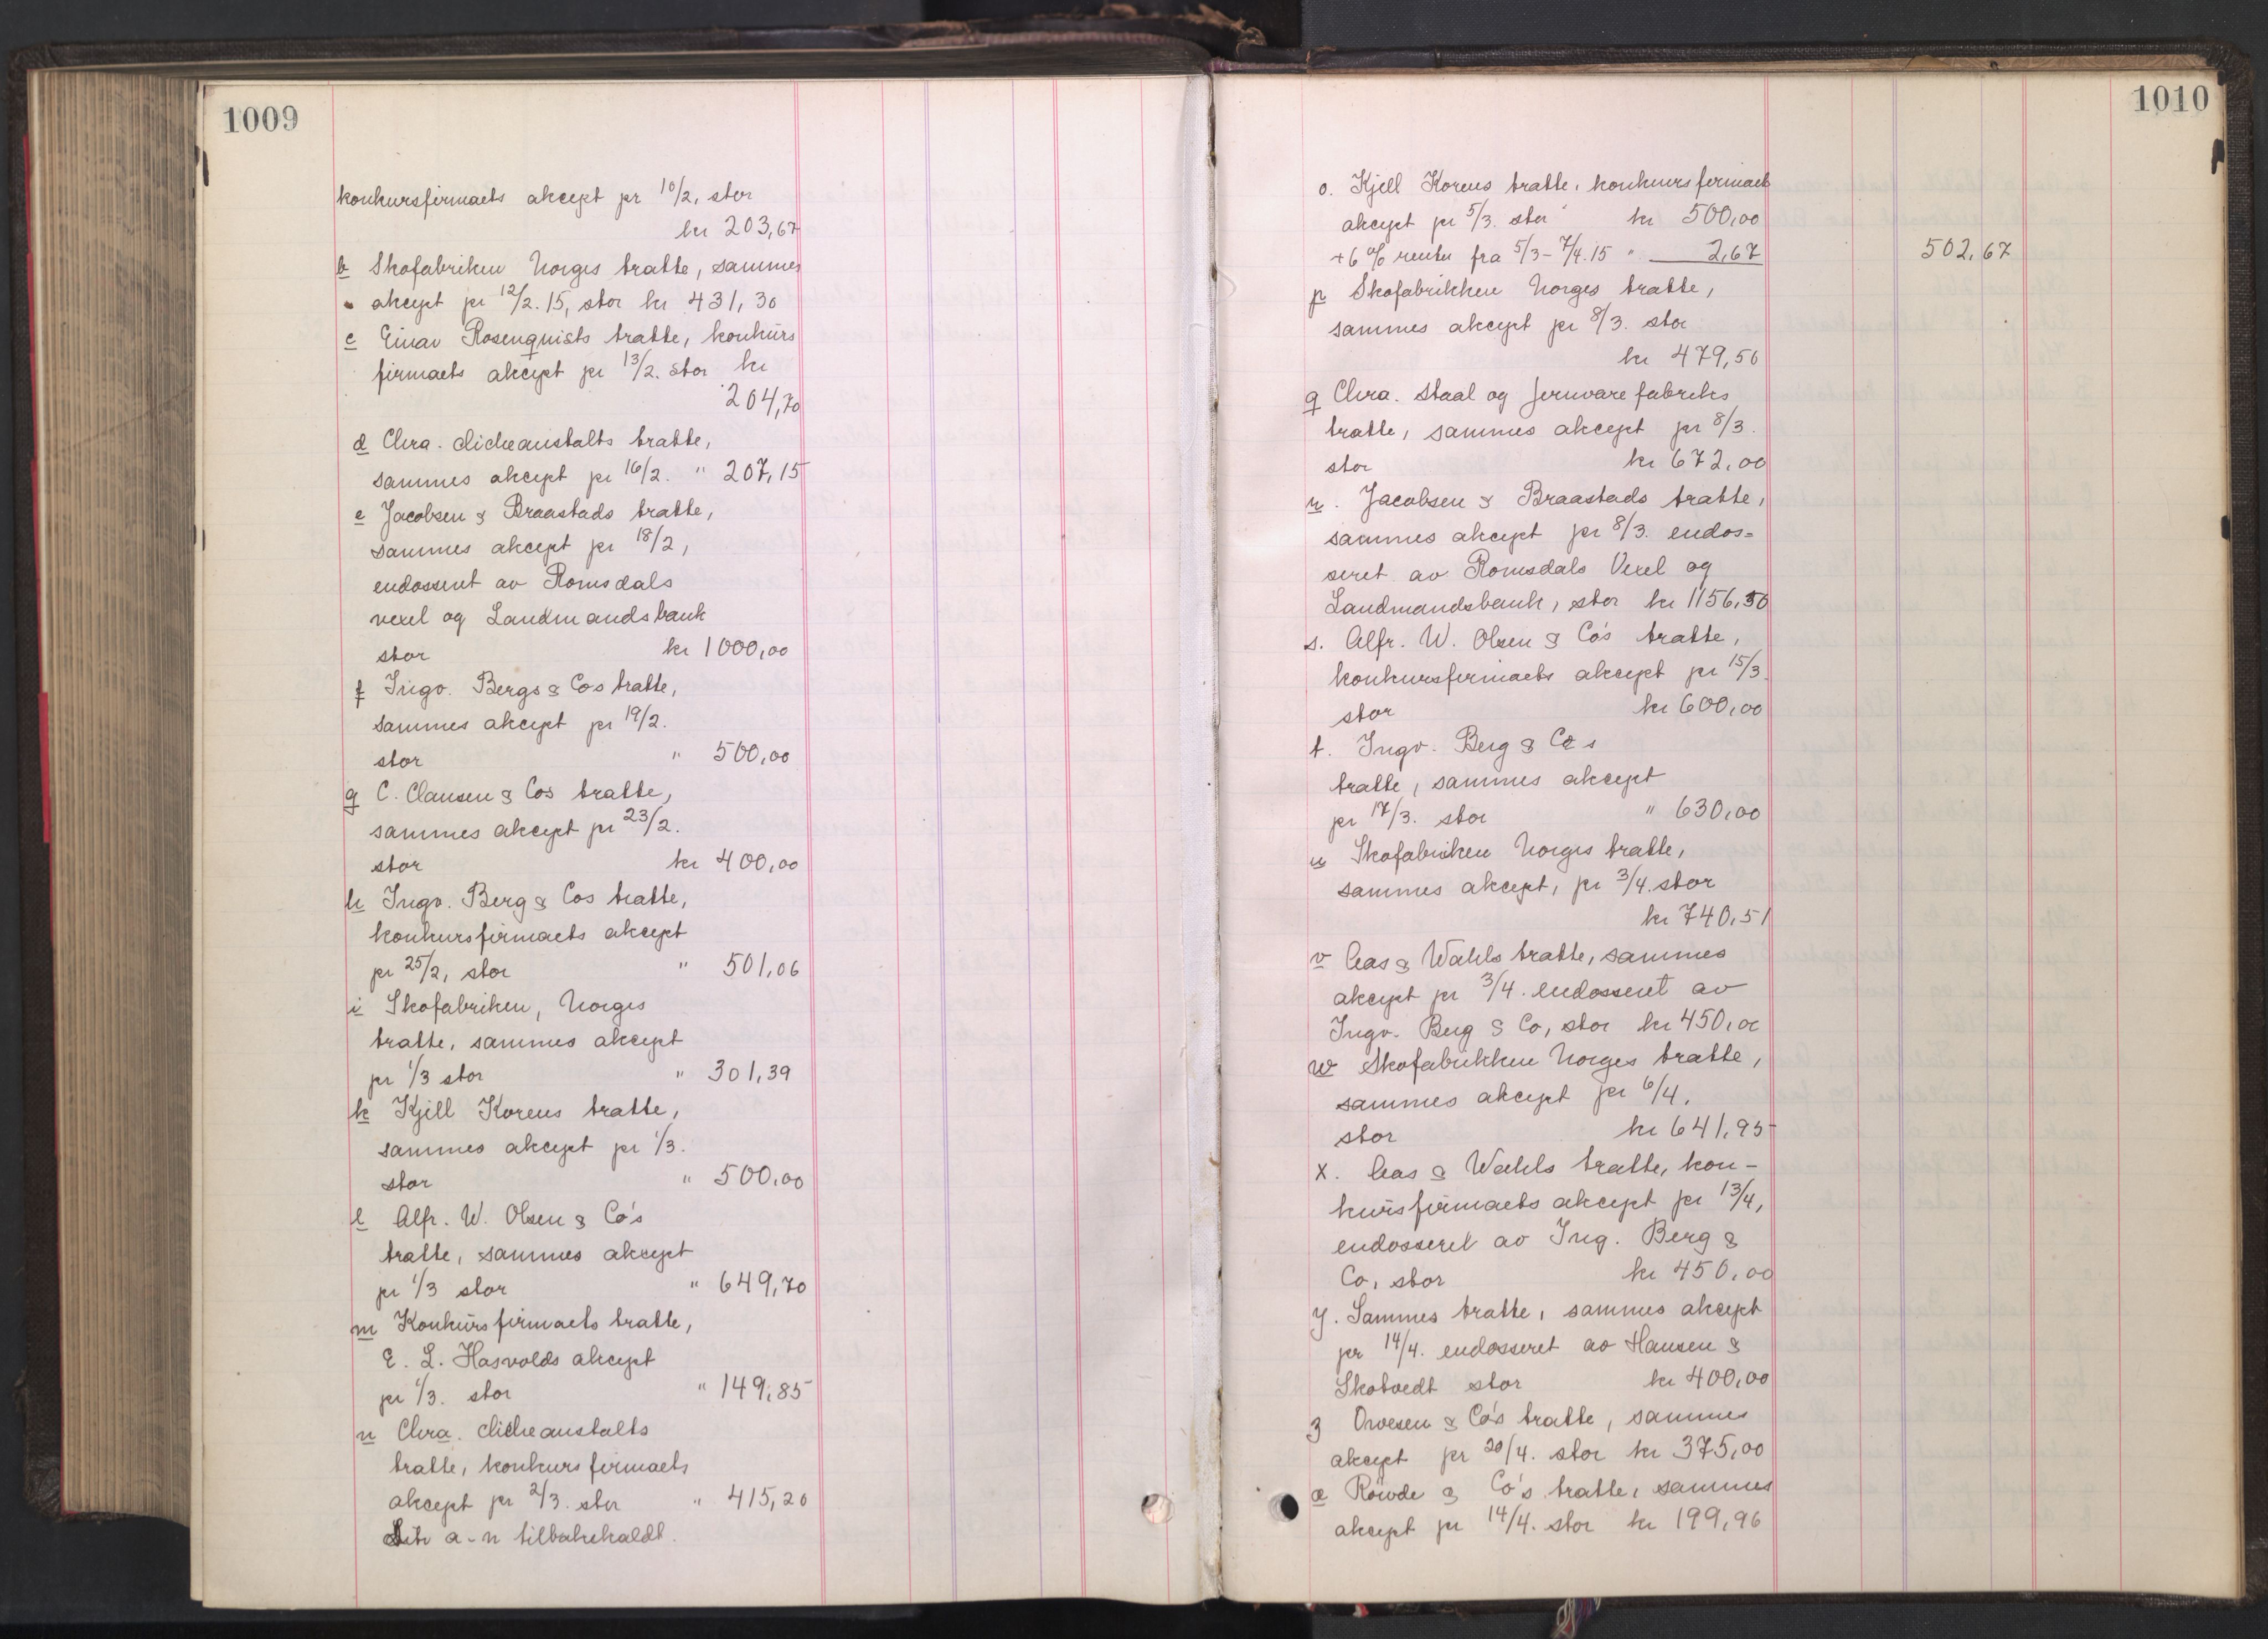 1009
konkursfirmaets akcept pr 10/2, stor
kr 203,67
b Skofabriken Norges tratte, sammes
akcept pr 12/2. 15, stor kr 431,30
c Einar Rosenquists tratte, konkurs
firmaets akcept pr 13/2. stor kr
204,70
d Chra. clicheanstalts tratte,
sammes akcept pr 16/2. " 207,15
e Jacobsen & Braastads tratte,
sammes akcept pr 18/2,
endosseret av Romsdals
vexel og Landmandsbank
stor kr 1000,00
f Ingv. Bergs & Cos tratte,
sammes akcept pr 19/2.
stor " 500,00
g C. Clausen & Cos tratte,
sammes akcept pr 23/2.
stor kr 400,00
h Ingv. Berg & Cos tratte,
konkursfirmaets akcept
pr 25/2, stor " 501,06
i Skofabriken, Norges
tratte, sammes akcept
pr 1/3 stor " 301,39
k Kjell Korens tratte,
sammes akcept pr 1/3.
stor " 500,00
l Alfr. W. Olsen & Co's
tratte, sammes akcept
pr 1/3 stor " 649,70
m Konkursfirmaets tratte,
E. L. Hasvolds akcept
pr 1/3. stor " 149,85
n Chra. clicheanstalts
tratte, konkursfirmaets
akcept pr 2/3. stor " 415,20
Litr a-n tilbakekaldt.
1010
o. Kjell Korens tratte, konkursfirmaets
akcept pr 5/3. stor kr 500,00
+ 6 % renter fra 5/3 - 7/4. 15 " 2,67 502,67
p Skofabrikken Norges tratte,
sammes akcept pr 8/3. stor
kr 479,56
q Chra. Staal og Jernvarefabriks
tratte, sammes akcept pr 8/3.
stor kr 672,00
r. Jacobsen & Braastads tratte,
sammes akcept pr 8/3. endos=
seret av Romsdals Vexel og
Landmandsbank, stor kr 1156,50
s. Alfr. W. Olsen & Co's tratte,
konkursfirmaets akcept pr 15/3.
stor kr 600,00
t. Ingv. Berg & Cos
tratte, sammes akcept
pr 17/3. stor " 630,00
u Skofabriken Norges tratte,
sammes akcept, pr 3/4. stor
kr 740,51
v Aas & Wahls tratte, sammes
akcept pr 3/4. endosseret av
Ingv. Berg & Co, stor kr 450,00
w Skofabrikken Norges tratte,
sammes akcept pr 6/4.
stor kr 641,95
x. Aas & Wahls tratte, kon-
kursfirmaets akcept pr 13/4,
endosseret av Ing. Berg &
Co, stor kr 450,00
y. Sammes tratte, sammes akcept
pr 14/4. endosseret av Hansen &
Skotvedt stor kr 400,00
z Ovesen & Co's tratte, sammes
akcept pr 20/4. stor kr 375,00
æ Røwde & Co's tratte, sammes
akcept pr 14/4. stor kr 199,96